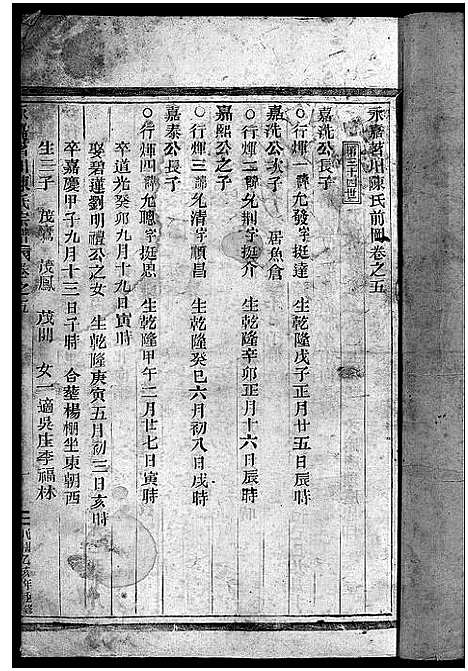 永嘉茗川陳氏前圖卷之五
第三十四世
嘉洗公長子
○行煇一諱允發字挺達　生乾隆戊子正月廿五日辰時
嘉洗公次子　居魚倉
○行煇二諱允荆字挺介　生乾隆辛卯正月十六日辰時
嘉熙公之子
○行煇三諱允清字順昌　生乾隆癸巳六月初八日戌時
嘉泰公長子
○行煇四諱允聰字挺恩　生乾隆甲午二月廿七日寅時
卒道光癸卯九月十九日寅時
娶碧蓮劉明禮公之女　生乾隆庚寅五月初三日亥時
卒嘉慶甲子九月十三日子時　合葬楊棚坐東朝西
生三子　茂　茂鳳　茂開　女一適吳庄李福林
永嘉茗川陳氏宗譜　圖卷之五